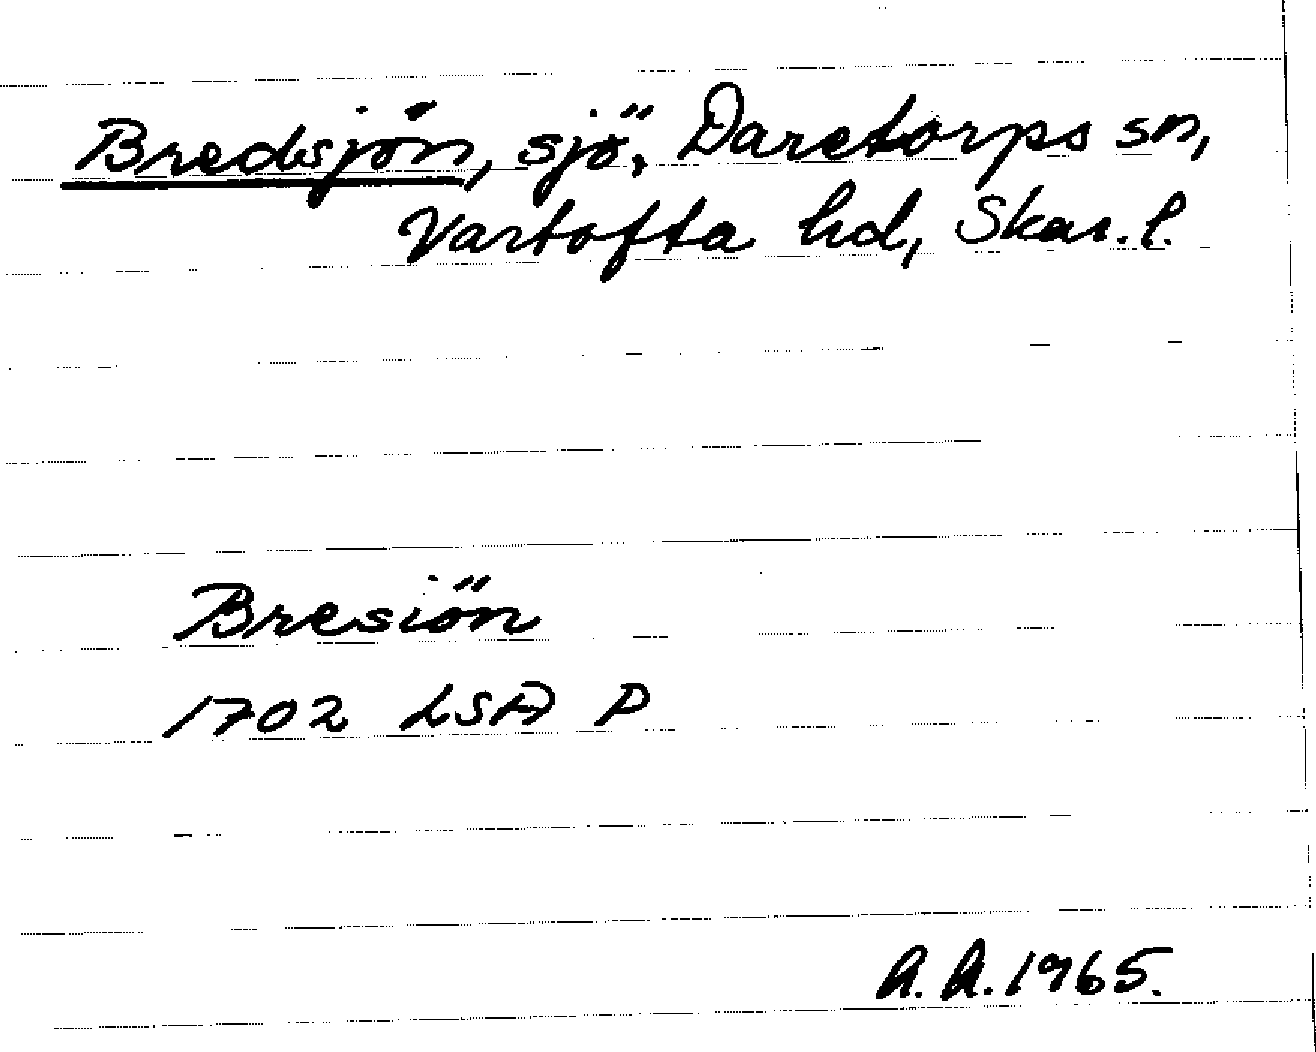 Bredsjön, sjö, Daretorps sn,
Vartofta hd, Skar. l.
Bresiön
1702 LSA P
A.A. 1965.